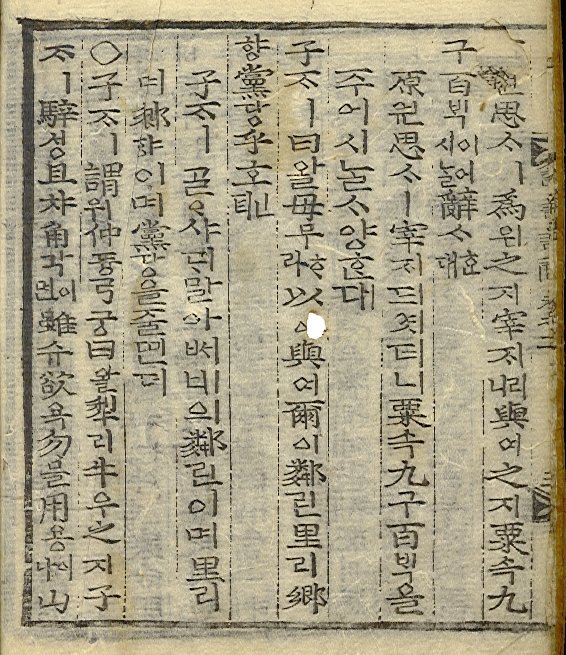 思ᄉᆞㅣ爲위之지宰ᄌᆡ러니與여之지粟속九
구百ᄇᆡᆨ이어시ᄂᆞᆯ辭ᄉᆞᄒᆞᆫ대
原원思ᄉᆞㅣ宰ᄌᆡ되엿더니粟속九구百ᄇᆡᆨ을
주어시ᄂᆞᆯᄉᆞ양ᄒᆞᆫ대
子ᄌᆞㅣ曰왈毋무ᄒᆞ라以이與여爾이鄰린里리鄕
향黨당乎호ᅟᅵᆫ뎌
子ᄌᆞㅣᄀᆞᆯᄋᆞ샤ᄃᆡ말아ᄡᅥ네의鄰린이며里리
며鄕향이며黨당을줄띤뎌
○子ᄌᆞㅣ謂위仲듕弓궁曰왈犁리牛우之지子
ᄌᆞㅣ騂셩且챠角각이면雖슈欲욕勿믈用용이나山